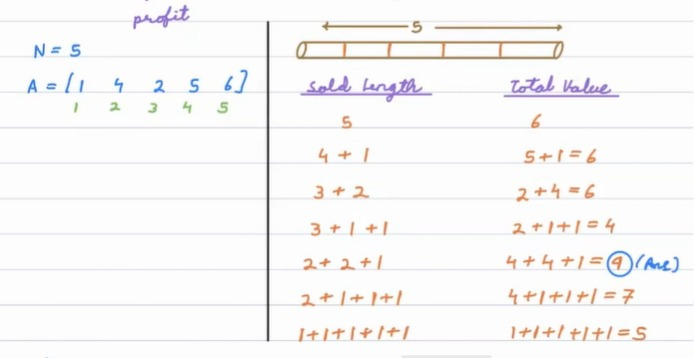 profit
N = 5
A = [1 4 2 5 6]
1 2 3 4 5
5
Sold Length Total Value
5 6
4 + 1 5+1=6
3 + 2 2+4=6
3 + 1 + 1 2+1+1=4
2 + 2 + 1 4+4+1=9 (Ans)
2+1+1+1 4+1+1+1=7
1+1+1+1+1 1+1+1+1+1=5